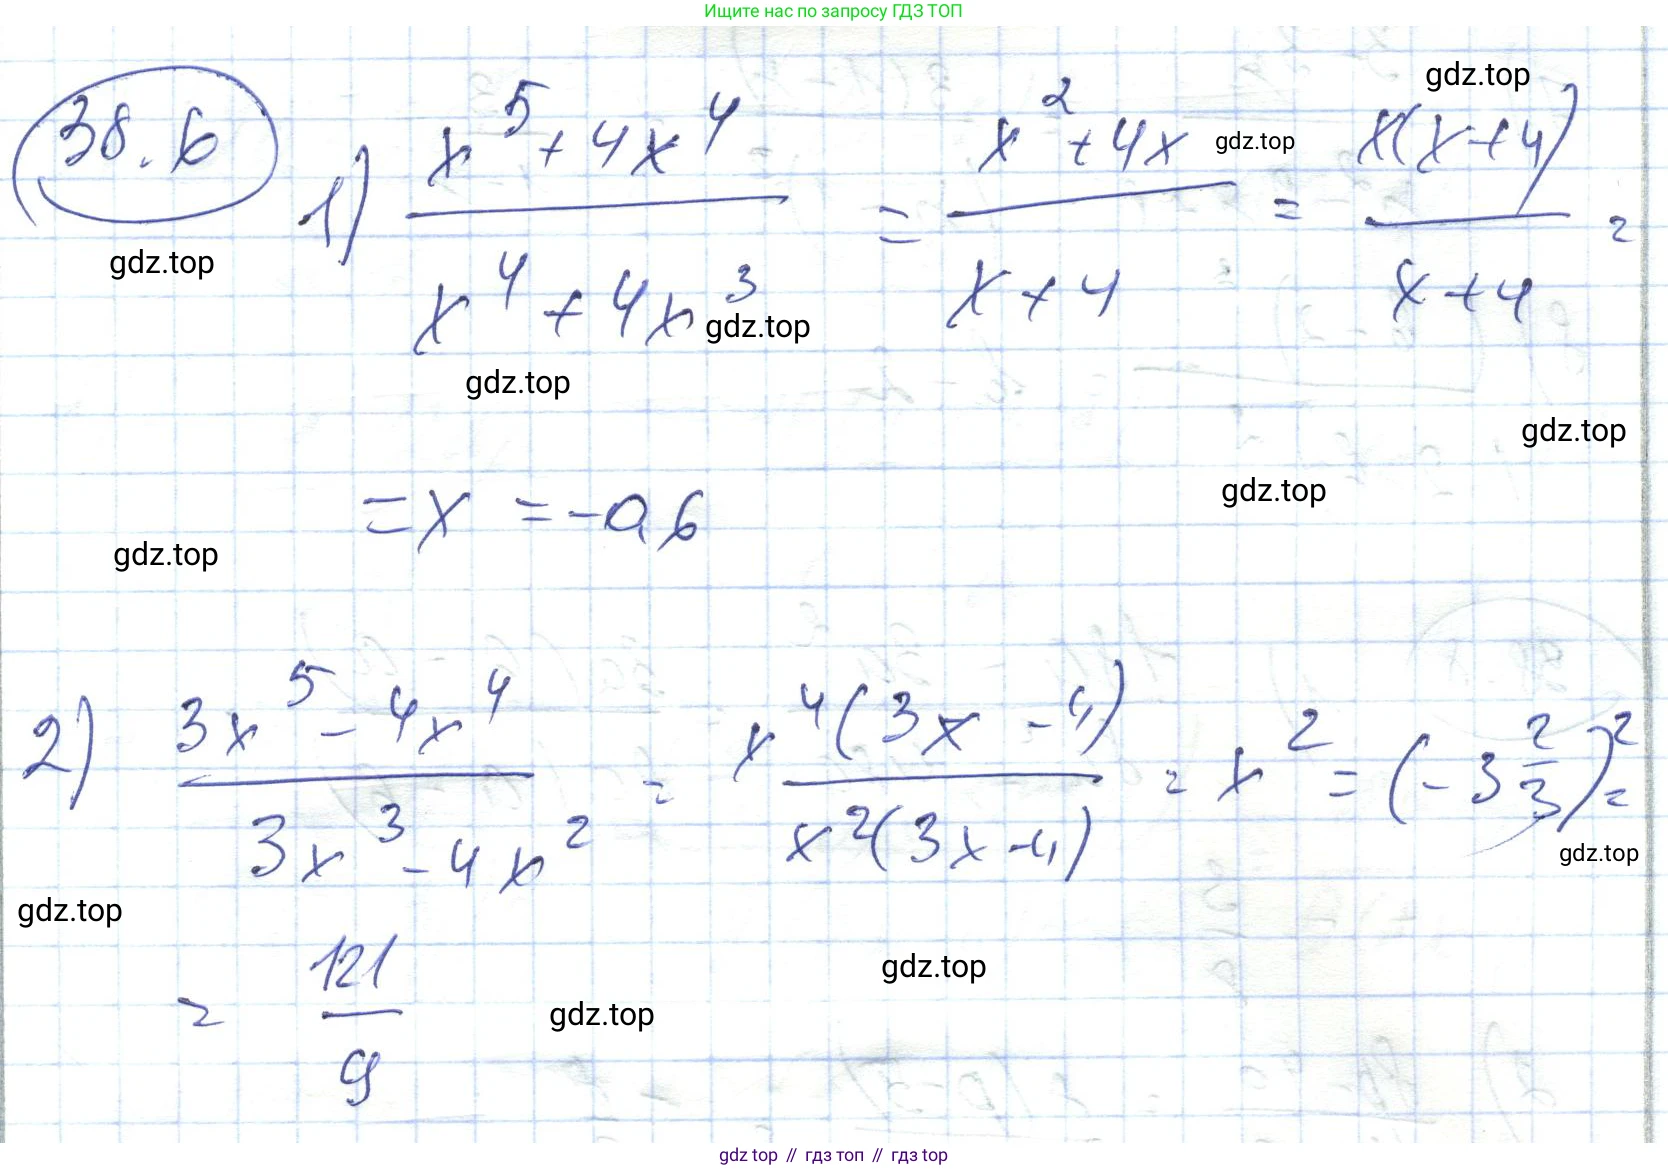 Ищите нас по запросу ГДЗ ТОП
38.6
1) (x^5 + 4x^4)/(x^4 + 4x^3) = (x^2 + 4x)/(x + 4) = x(x + 4)/(x + 4) =
= x = -0,6
2) (3x^5 - 4x^4)/(3x^3 - 4x^2) = x^4(3x - 4)/(x^2(3x - 4)) = x^2 = (-3 2/3)^2 =
= 121/9
gdz.top
gdz.top
gdz.top
gdz.top
gdz.top
gdz.top
gdz.top
gdz.top
gdz.top
gdz.top
gdz.top
gdz.top
gdz top // гдз топ // gdz top